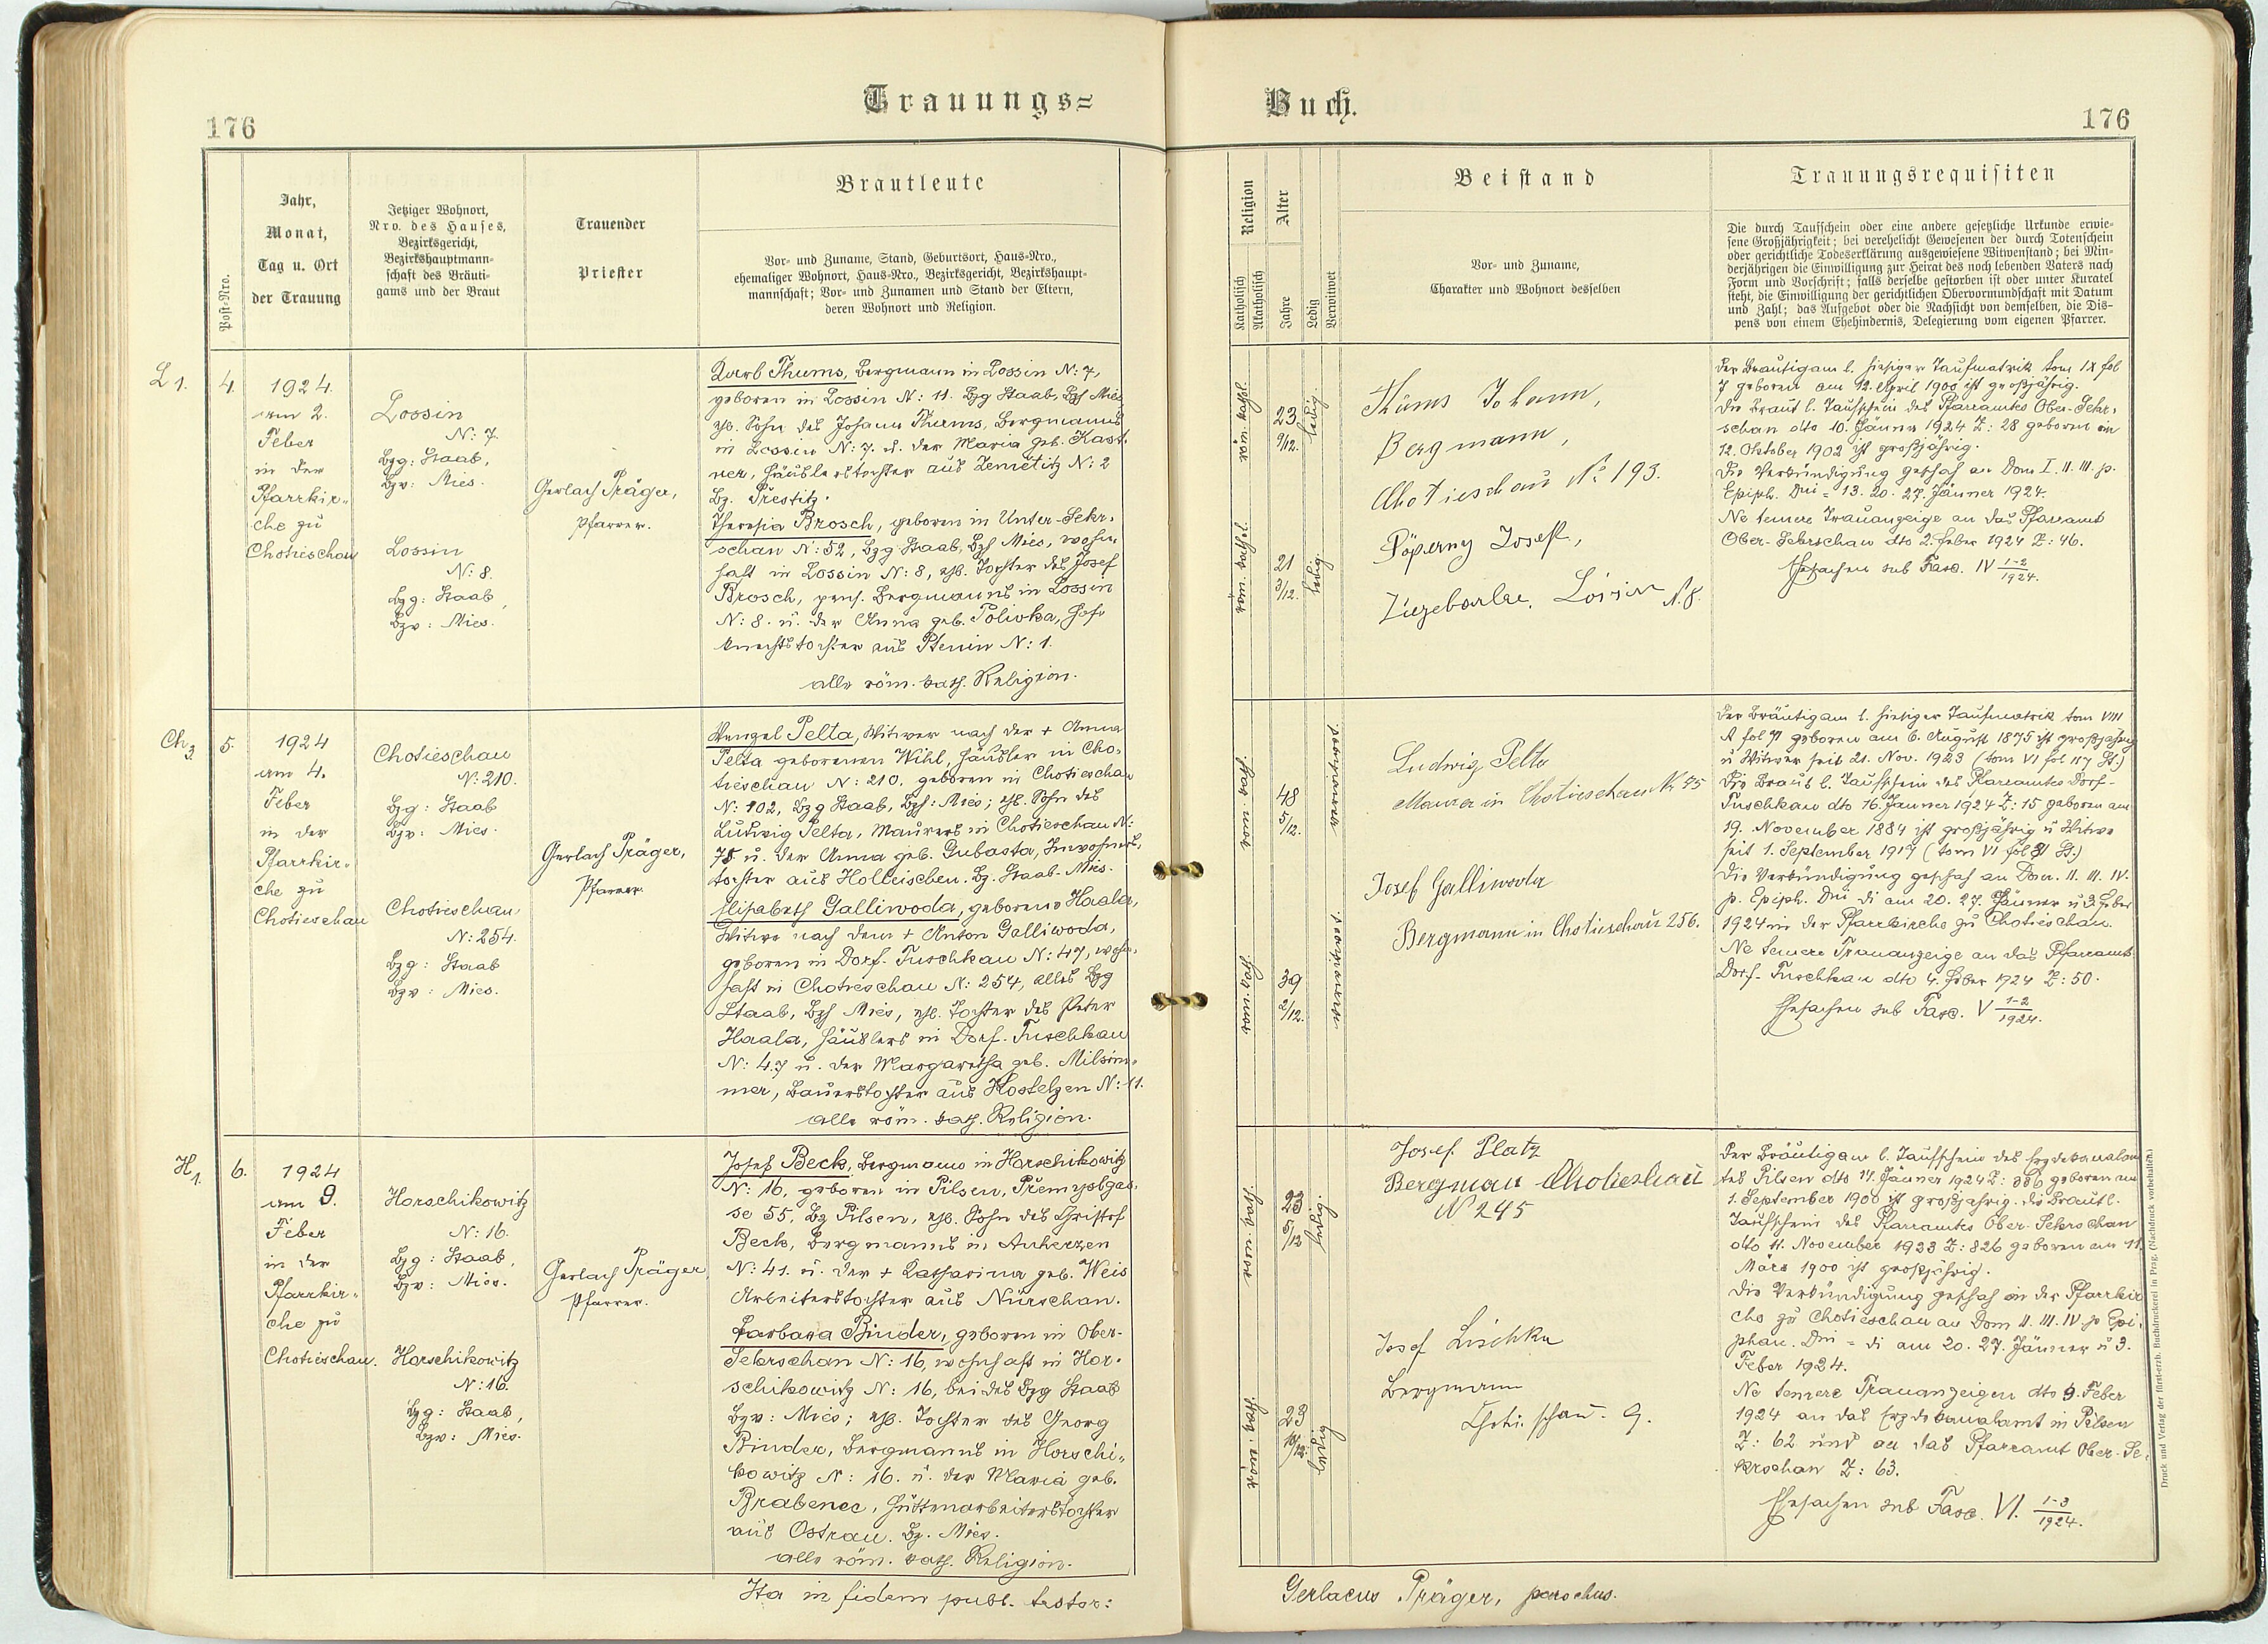 Trauungs=
Buch.
176
176
Post-Nro.
Jahr,
Monat,
Tag u. Ort
der Trauung
Jetziger Wohnort,
Nro. des Hauses,
Bezirksgericht,
Bezirkshauptmann-
schaft des Bräuti-
gams und der Braut
Trauender
Priester
Brautleute
Vor- und Zuname, Stand, Geburtsort, Haus-Nro.,
ehemaliger Wohnort, Haus-Nro., Bezirksgericht, Bezirkshaupt-
mannschaft; Vor- und Zunamen und Stand der Eltern,
deren Wohnort und Religion.
Religion
Katholisch
Akatholisch
Alter
Jahre
Ledig
Verwitwet
Beistand
Vor- und Zuname,
Charakter und Wohnort desselben
Trauungsrequisiten
Die durch Taufschein oder eine andere gesetzliche Urkunde erwie-
sene Großjährigkeit; bei verehelicht Gewesenen der durch Totenschein
oder gerichtliche Todeserklärung ausgewiesene Witwenstand; bei Min-
derjährigen die Einwilligung zur Heirat des noch lebenden Vaters nach
Form und Vorschrift; falls derselbe gestorben ist oder unter Kuratel
steht, die Einwilligung der gerichtlichen Obervormundschaft mit Datum
und Zahl; das Aufgebot oder die Nachsicht von demselben, die Dis-
pens von einem Ehehindernis, Delegierung vom eigenen Pfarrer.
L 1.
4.
1924.
am 2.
Feber
in der
Pfarrkir-
che zu
Chotieschau
Lossin
N: 7.
Bzg: Staab,
Bzv: Mies.
Lossin
N: 8.
Bzg: Staab,
Bzv: Mies.
Gerlach Präger,
Pfarrer.
Karl Thums, Bergmann in Lossin N: 7,
geboren in Lossin N: 11. Bzg Staab, Bzh Mies
ehl. Sohn des Johann Thums, Bergmanns
in Lossin N: 7. u. der Maria geb. Kast-
ner, Häuslerstochter aus Zemetitz N: 2
Bz. Přestitz.
Theresia Brosch, geboren in Unter-Sekr-
schan N: 52, Bzg Staab, Bzh Mies, wohn-
haft in Lossin N: 8, ehl. Tochter des Josef
Brosch, pens. Bergmanns in Lossin
N: 8. u. der Anna geb. Polivka, Hof-
knechtstochter aus Ptenin N: 1.
alle röm. kath. Religion.
röm. kath.
23
9/12.
ledig
röm. kath.
21
3/12.
ledig
Thüms Johann,
Bergmann,
Chotieschau No 193.
Josef,
Lossin N. 8.
Der Bräutigam l. hiesiger Taufmatrik tom IX fol
7 geboren am 12. April 1900 ist großjährig.
Die Braut l. Taufschein des Pfarramtes Ober-Sekr-
schan dto 10. Jänner 1924 Z: 28 geboren am
12. Oktober 1902 ist großjährig.
Die Verkündigung geschah an Dom I. II. III. p.
Epiph. Dni = 13. 20. 27. Jänner 1924.
Ne temere Trauanzeige an das Pfarramt
Ober-Sekrschan dto 2. Feber 1924 Z: 46.
Ehesachen sub Fasc. IV 1-2/1924.
Ch 3.
5.
1924
am 4.
Feber
in der
Pfarrkir-
che zu
Chotieschau
Chotieschau
N: 210.
Bzg: Staab
Bzv: Mies.
Chotieschau
N: 254.
Bzg: Staab
Bzv: Mies.
Gerlach Präger,
Pfarrer.
Wenzel Pelta, Witwer nach der + Anna
Pelta geborenen Wihl, Häusler in Cho-
tieschau N: 210. geboren in Chotieschau
N: 102, Bzg Staab, Bzh: Mies; ehl. Sohn des
Ludwig Pelta, Maurers in Chotieschau N:
75 u. der Anna geb. Gubasta, Inwohners-
tochter aus Holleischen. Bz. Staab-Mies.
Elisabeth Galliwoda, geborene Haala,
Witwe nach dem + Anton Galliwoda,
geboren in Dorf-Tuschkau N: 47, wohn-
haft in Chotieschau N: 254, alles Bzg
Staab, Bzh Mies, ehl. Tochter des Peter
Haala, Häuslers in Dorf-Tuschkau
N: 47 u. der Margaretha geb. Milsim-
mer, Bauerstochter aus Kosteltzen N: 11.
alle röm. kath. Religion.
röm. kath.
48
5/12.
verwitwet
röm. kath.
39
2/12.
verwitwet
Ludwig Pelta
Maurer in Chotieschau N. 75
Josef Galliwoda
Bergmann in Chotieschau 256.
Der Bräutigam l. hiesiger Taufmatrik tom VIII
A fol 71 geboren am 6. August 1875 ist großjährig
u Witwer seit 21. Nov. 1923 (tom VI fol 117 St.)
Die Braut l. Taufschein des Pfarramtes Dorf-
Tuschkau dto 16. Jänner 1924 Z: 15 geboren am
19. November 1884 ist großjährig u Witwe
seit 1. September 1917 (tom VI fol 31 St.)
Die Verkündigung geschah an Dom. II. III. IV.
p. Epiph. Dni di am 20. 27. Jänner u 3. Feber
1924 in der Pfarrkirche zu Chotieschau.
Ne temere Trauanzeige an das Pfarramt
Dorf-Tuschkau dto 4. Feber 1924 Z: 50.
Ehesachen sub Fasc. V 1-2/1924.
H 1.
6.
1924
am 9.
Feber
in der
Pfarrkir-
che zu
Chotieschau.
Horschikowitz
N: 16.
Bzg: Staab,
Bzv: Mies.
Horschikowitz
N: 16.
Bzg: Staab,
Bzv: Mies.
Gerlach Präger,
Pfarrer.
Josef Beck, Bergmann in Horschikowitz
N: 16, geboren in Pilsen, Přemyslgas-
se 55, Bz Pilsen, ehl. Sohn des Christof
Beck, Bergmanns in Auherzen
N: 41. u. der + Katharina geb. Weis
Arbeiterstochter aus Nürschan.
Barbara Binder, geboren in Ober-
Sekrschan N: 16, wohnhaft in Hor-
schikowitz N: 16, beides Bzg Staab
Bzv: Mies; ehl. Tochter des Georg
Binder, Bergmanns in Horschi-
kowitz N: 16. u. der Maria geb.
Brabenec, Hüttenarbeiterstochter
aus Ostrau. Bz. Mies.
alle röm. kath. Religion.
röm. kath.
23
5/12
ledig
röm. kath.
23
10/12.
ledig
Josef Platz
Bergman Chotieschau
N 245
Josef Lischka
Bergmann
Chotieschau. 9.
Der Bräutigam l. Taufschein des Erzdekanalam-
tes Pilsen dto 11. Jänner 1924 Z: 886 geboren am
1. September 1900 ist großjährig. Die Braut l.
Taufschein des Pfarramtes Ober-Sekrschan
dto 11. November 1923 Z: 826 geboren am 11.
März 1900 ist großjährig.
Die Verkündigung geschah in der Pfarrkir
che zu Chotieschau an Dom II. III. IV p Epi-
phan. Dni = di am 20. 27. Jänner u 3.
Feber 1924.
Ne temere Trauanzeigen dto 9. Feber
1924 an das Erzdekanalamt in Pilsen
Z: 62 und an das Pfarramt Ober-Se-
krschan Z: 63.
Ehesachen sub Fasc. VI. 1-3/1924.
Druck und Verlag der fürst-erzb. Buchdruckerei in Prag. (Nachdruck vorbehalten.)
Ita in fidem publ. testor:
Gerlacus Präger, parochus.